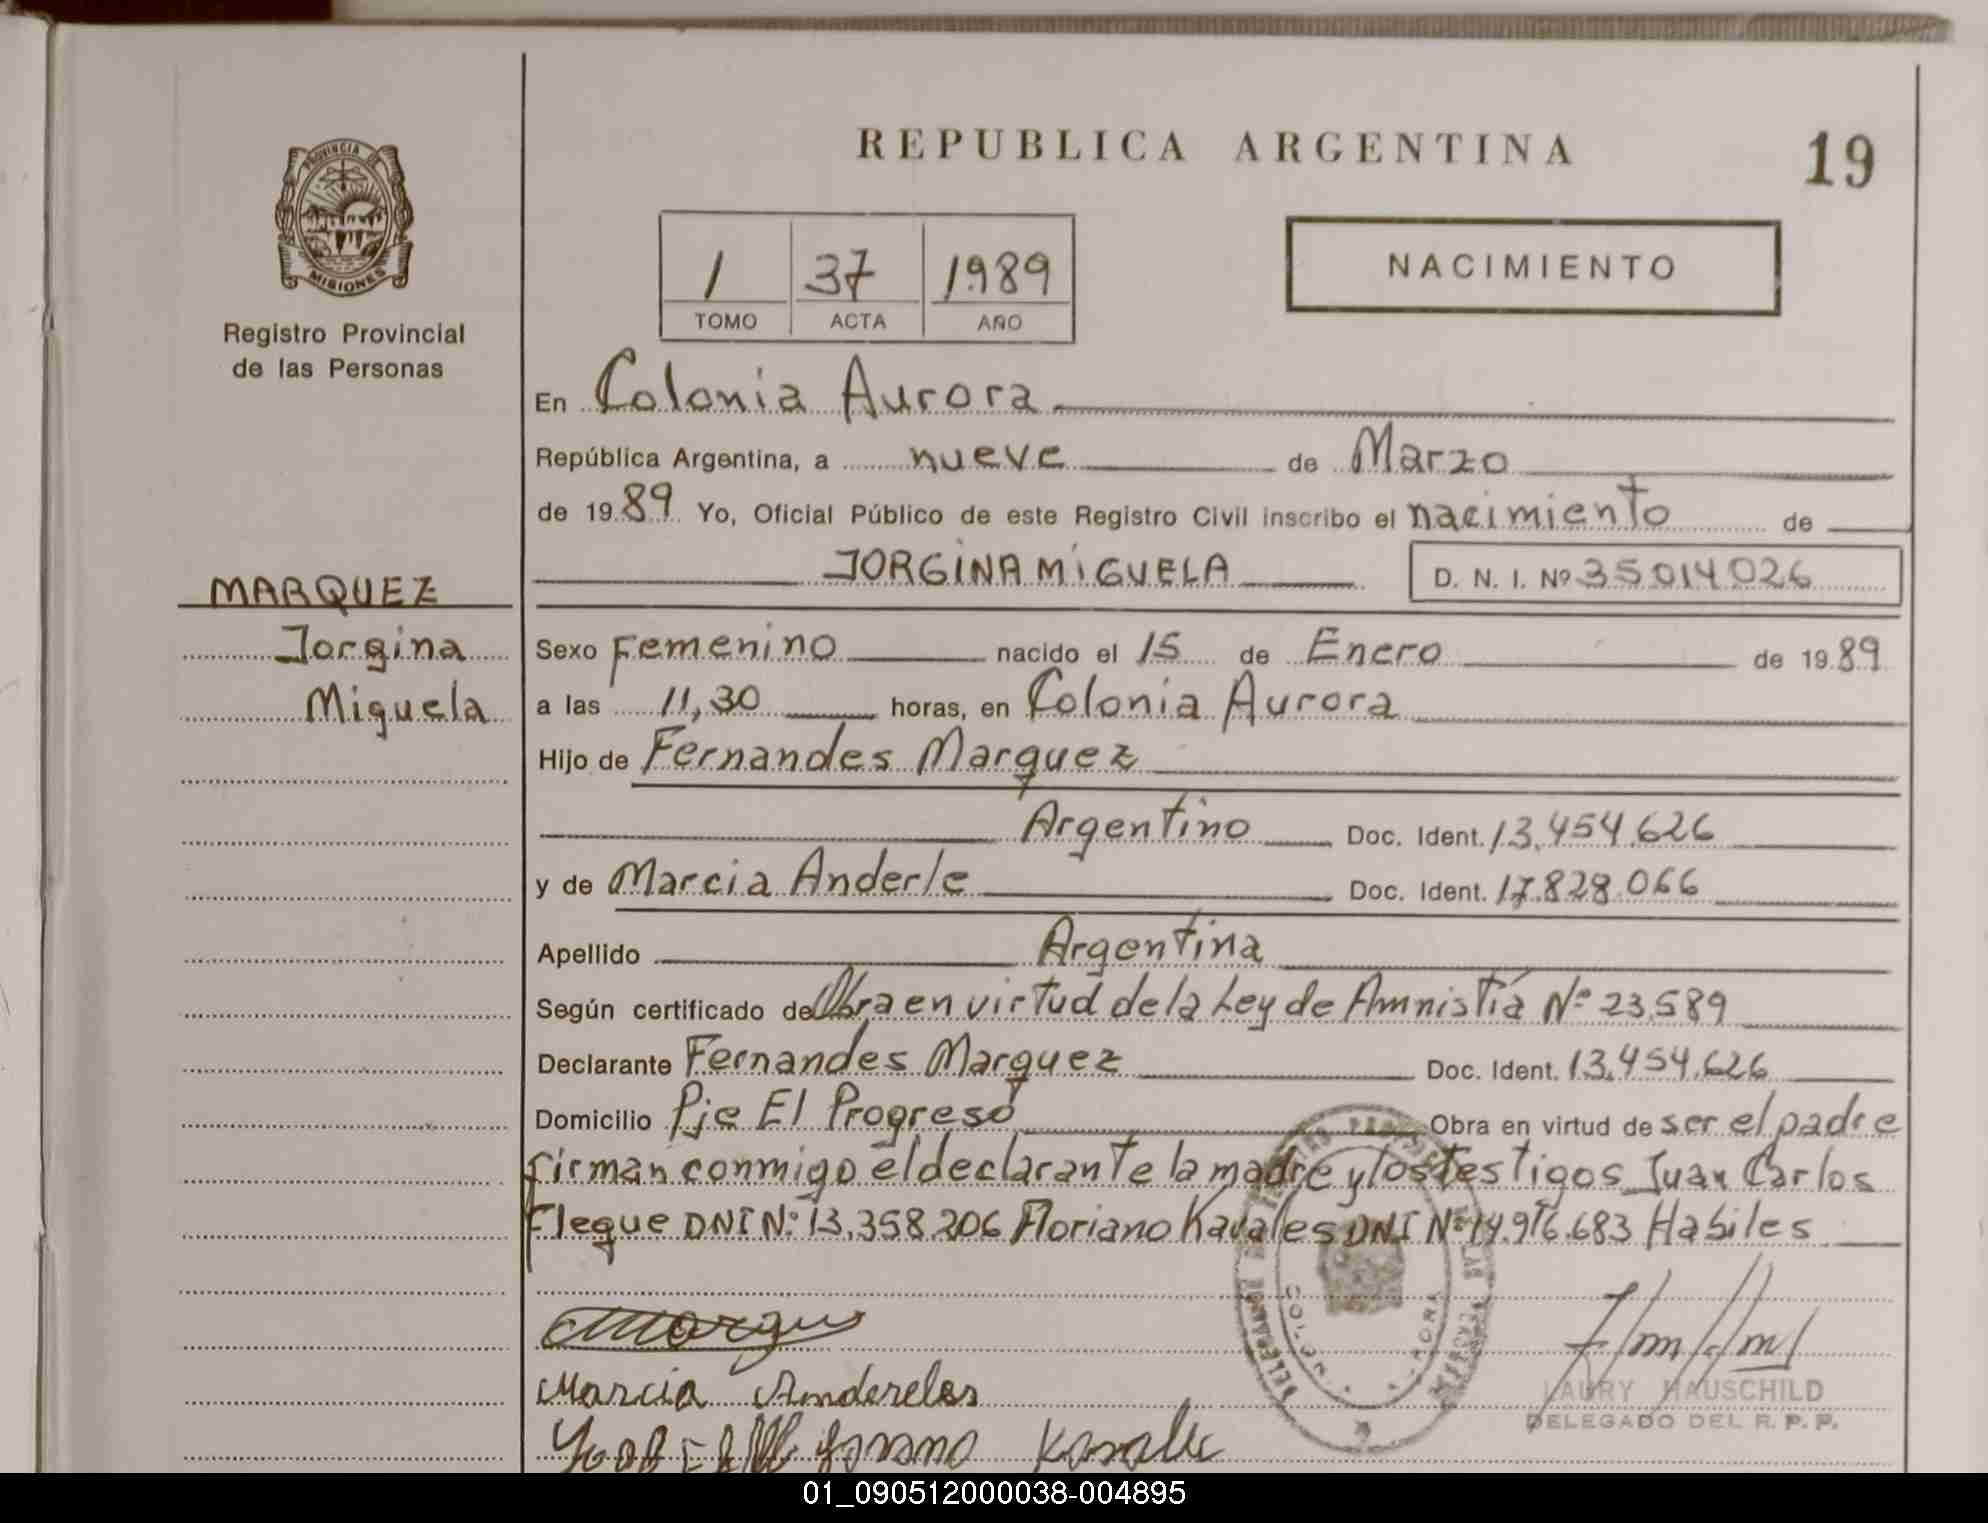 REPUBLICA ARGENTINA
19
PROVINCIA DE
MISIONES
Registro Provincial
de las Personas
1 37 1989
TOMO ACTA AÑO
NACIMIENTO
En Colonia Aurora
República Argentina, a nueve de Marzo
de 1989 Yo, Oficial Público de este Registro Civil inscribo el nacimiento de
JORGINA MIGUELA D. N. I. Nº 35014026
MARQUEZ
Jorgina
Miguela
Sexo Femenino nacido el 15 de Enero de 1989
a las 11,30 horas, en Colonia Aurora
Hijo de Fernandes Marquez
Argentino Doc. Ident. 13.454.626
y de Marcia Anderle Doc. Ident. 17.828.066
Apellido Argentina
Según certificado de Obra en virtud de la Ley de Amnistía Nº 23.589
Declarante Fernandes Marquez Doc. Ident. 13.454.626
Domicilio Pje El Progreso Obra en virtud de ser el padre
firman conmigo el declarante la madre y los testigos Juan Carlos
Flegue DNI Nº 13.358.206 Floriano Kavales DNI Nº 14.916.683 Habiles
Marcia Anderles
LAURY HAUSCHILD
DELEGADO DEL R. P. P.
01_090512000038-004895